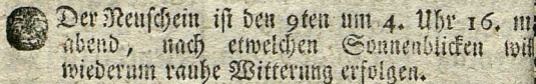 Der Neuschein ist den 9ten um 4. Uhr 16. m
abend, nach etwelchen Sonnenblicken will
wiederum rauhe Witterung erfolgen.